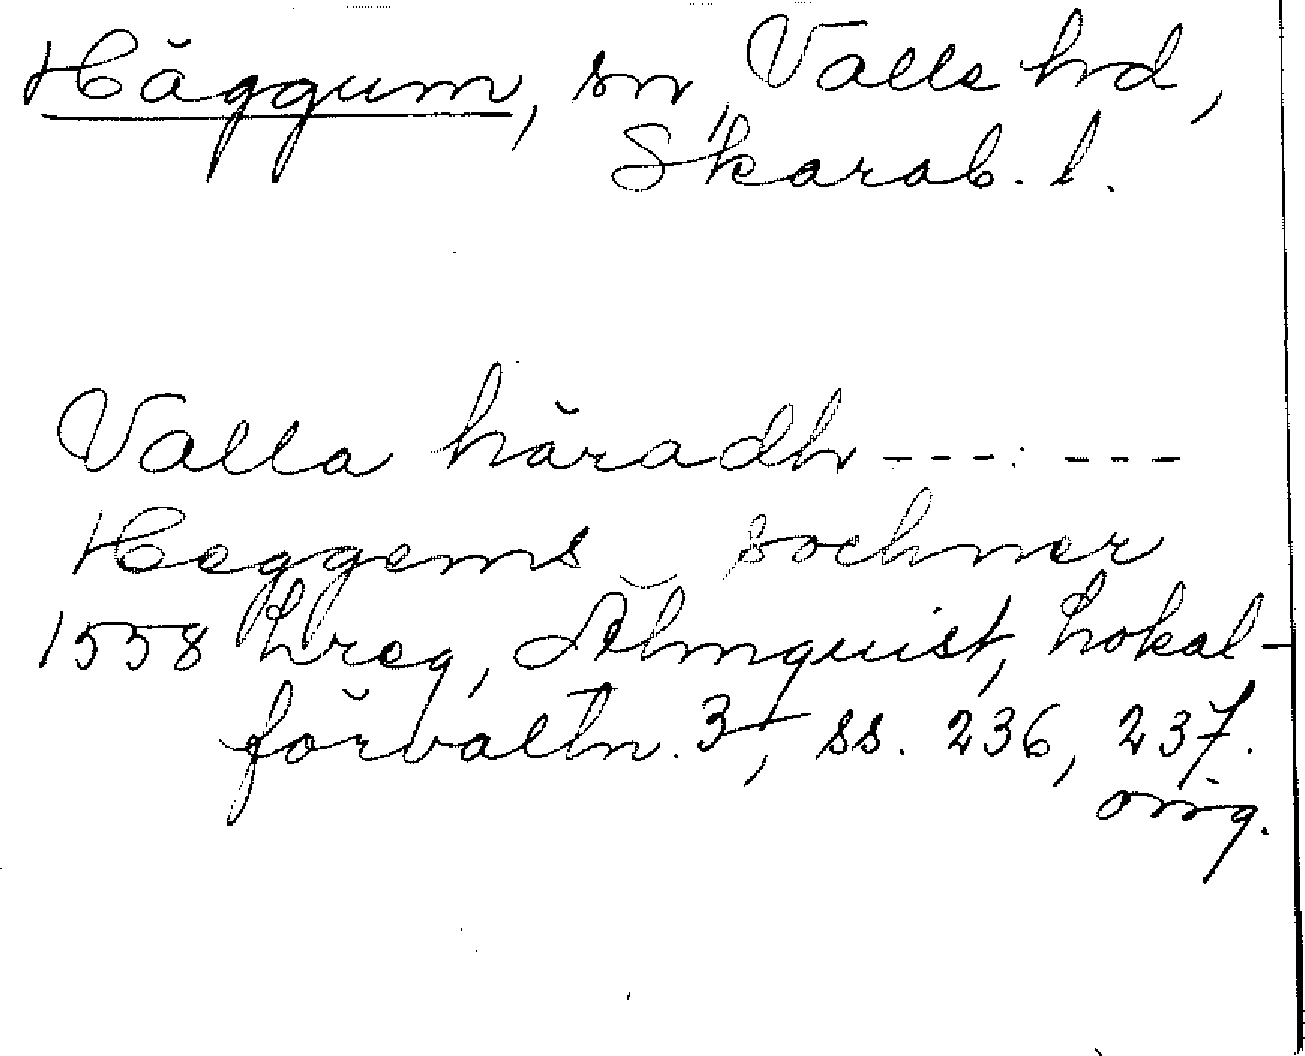 Häggum, sn, Valle hd,
Skarab. l.
Valla häradh --- : ---
Heggems sochner
1558 Lreg, Almquist, Lokal-
förvaltn. 3, ss. 236, 237.
orig.